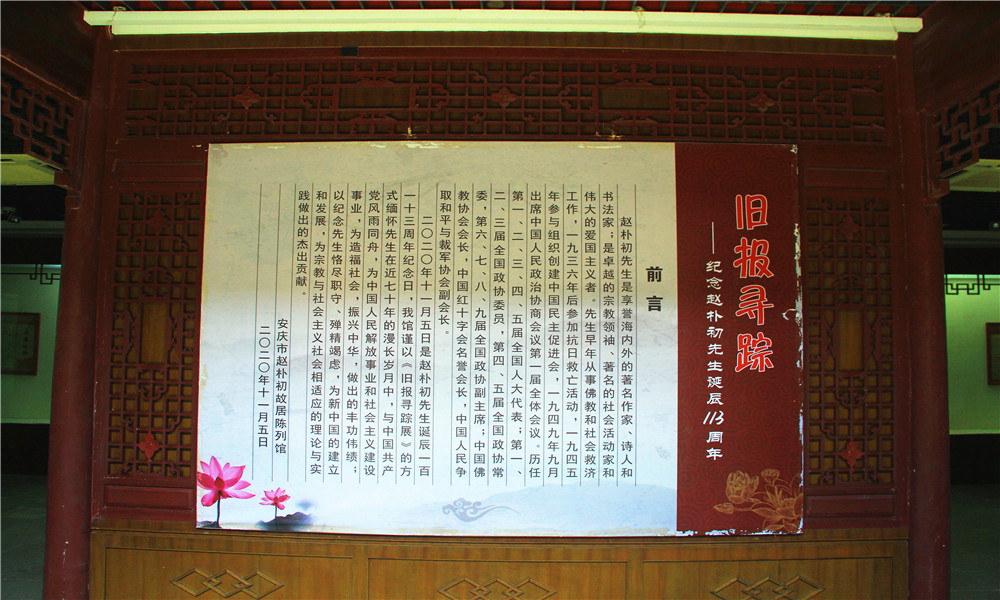 旧报寻踪
——纪念赵朴初先生诞辰113周年
前言
赵朴初先生是享誉海内外的著名作家、诗人和
书法家；是卓越的宗教领袖、著名的社会活动家和
伟大的爱国主义者。先生早年从事佛教和社会救济
工作，一九三六年后参加抗日救亡活动，一九四五
年参与组织创建中国民主促进会，一九四九年九月
出席中国人民政治协商会议第一届全体会议。历任
第一、二、三、四、五届全国人大代表；第一、
二、三届全国政协委员，第四、五届全国政协常
委，第六、七、八、九届全国政协副主席；中国佛
教协会会长，中国红十字会名誉会长，中国人民争
取和平与裁军协会副会长。
二〇二〇年十一月五日是赵朴初先生诞辰一百
一十三周年纪念日，我馆谨以《旧报寻踪展》的方
式缅怀先生在近七十年的漫长岁月中，与中国共产
党风雨同舟，为中国人民解放事业和社会主义建设
事业，为造福社会，振兴中华，做出的丰功伟绩；
以纪念先生恪尽职守、殚精竭虑，为新中国的建立
和发展，为宗教与社会主义社会相适应的理论与实
践做出的杰出贡献。
安庆市赵朴初故居陈列馆
二〇二〇年十一月五日